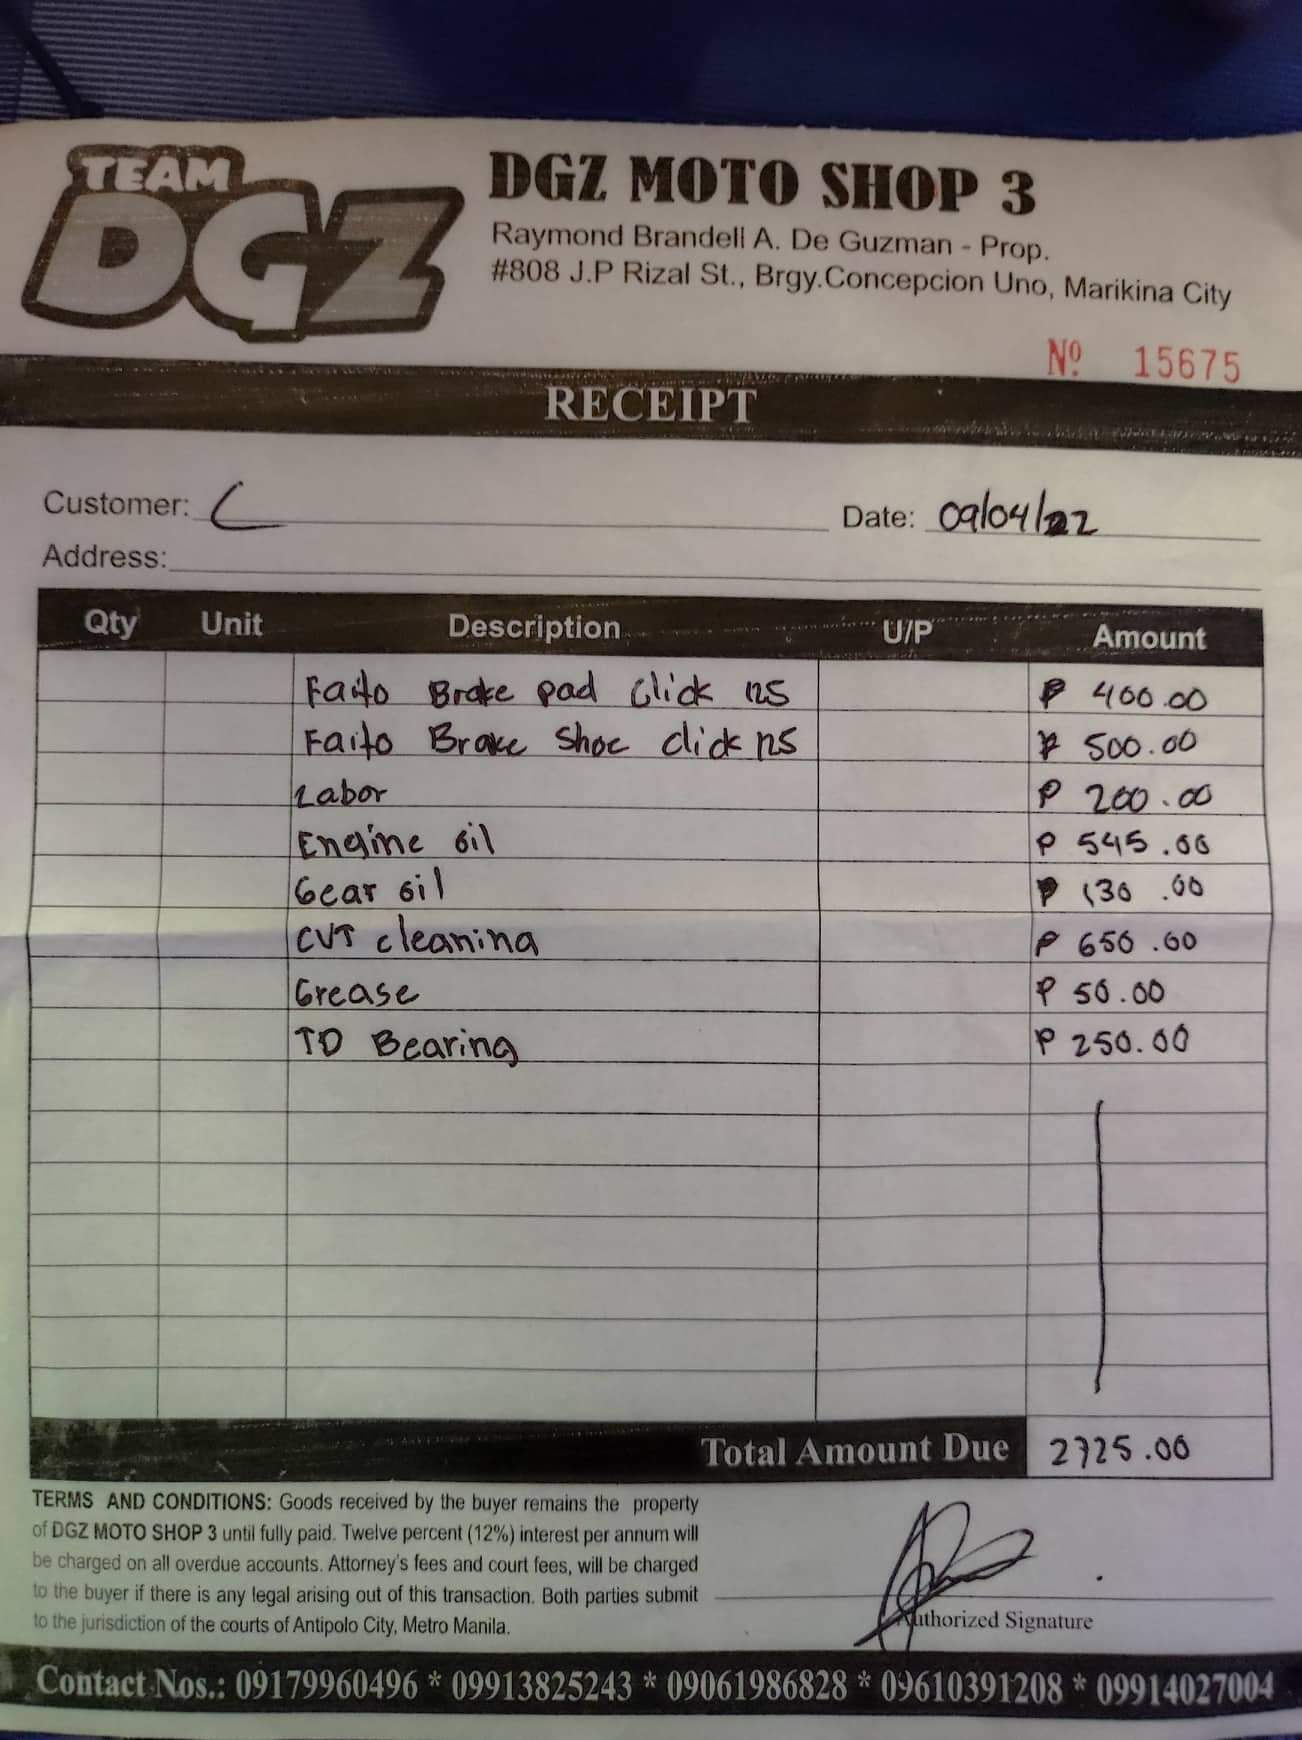 TEAM
DGZ
DGZ MOTO SHOP 3
Raymond Brandell A. De Guzman - Prop.
#808 J.P Rizal St., Brgy.Concepcion Uno, Marikina City
Nº 15675
RECEIPT
Customer: C
Date: 09/04/22
Address:
Qty Unit Description U/P Amount
Faito Brake pad Click 125 ₱ 400.00
Faito Brake Shoe click 125 ₱ 500.00
Labor ₱ 200.00
Engine oil ₱ 545.00
Gear oil ₱ 130.00
CVT cleaning ₱ 650.00
Grease ₱ 50.00
TD Bearing ₱ 250.00
Total Amount Due 2725.00
TERMS AND CONDITIONS: Goods received by the buyer remains the property
of DGZ MOTO SHOP 3 until fully paid. Twelve percent (12%) interest per annum will
be charged on all overdue accounts. Attorney's fees and court fees, will be charged
to the buyer if there is any legal arising out of this transaction. Both parties submit
to the jurisdiction of the courts of Antipolo City, Metro Manila.
Authorized Signature
Contact Nos.: 09179960496 * 09913825243 * 09061986828 * 09610391208 * 09914027004